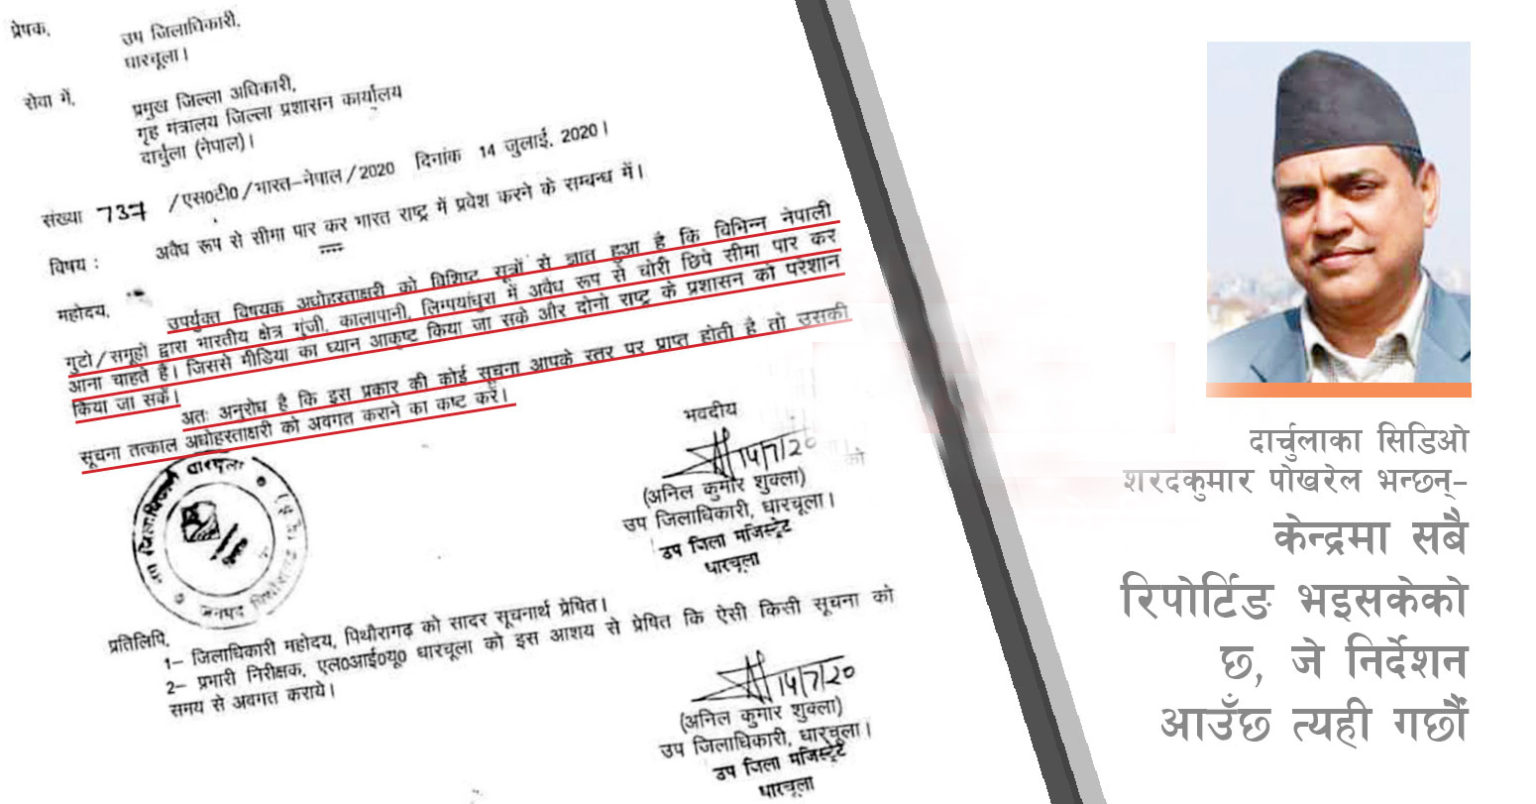 प्रेषक,
उप जिलाधिकारी,
धारचूला।
सेवा में,
प्रमुख जिल्ला अधिकारी,
गृह मंत्रालय जिल्ला प्रशासन कार्यालय
दार्चुला (नेपाल)।
संख्या 737 /एस0टी0/भारत-नेपाल/2020 दिनांक 14 जुलाई, 2020।
विषय : अवैध रूप से सीमा पार कर भारत राष्ट्र में प्रवेश करने के सम्बन्ध में।
महोदय,
उपर्युक्त विषयक अधोहस्ताक्षरी को विशिष्ट सूत्रों से ज्ञात हुआ है कि विभिन्न नेपाली
गुटो/समूहो द्वारा भारतीय क्षेत्र गुंजी, कालापानी, लिम्पयाधुरा में अवैध रूप से चोरी छिपे सीमा पार कर
आना चाहते है। जिससे मीडिया का ध्यान आकृष्ट किया जा सके और दोनो राष्ट्र के प्रशासन को परेशान
किया जा सकें।
अतः अनुरोध है कि इस प्रकार की कोई सूचना आपके स्तर पर प्राप्त होती है तो उसकी
सूचना तत्काल अधोहस्ताक्षरी को अवगत कराने का कष्ट करें।
भवदीय
14/7/20
(अनिल कुमार शुक्ला)
उप जिलाधिकारी, धारचूला।
उप जिला मजिस्ट्रेट
धारचूला
प्रतिलिपि,
1- जिलाधिकारी महोदय, पिथौरागढ़ को सादर सूचनार्थ प्रेषित।
2- प्रभारी निरीक्षक, एल0आई0यू0 धारचूला को इस आशय से प्रेषित कि ऐसी किसी सूचना को
समय से अवगत कराये।
14/7/20
(अनिल कुमार शुक्ला)
उप जिलाधिकारी, धारचूला।
उप जिला मजिस्ट्रेट
धारचूला
दार्चुलाका सिडिओ
शरदकुमार पोखरेल भन्छन्-
केन्द्रमा सबै
रिपोर्टिङ भइसकेको
छ, जे निर्देशन
आउँछ त्यही गर्छौं